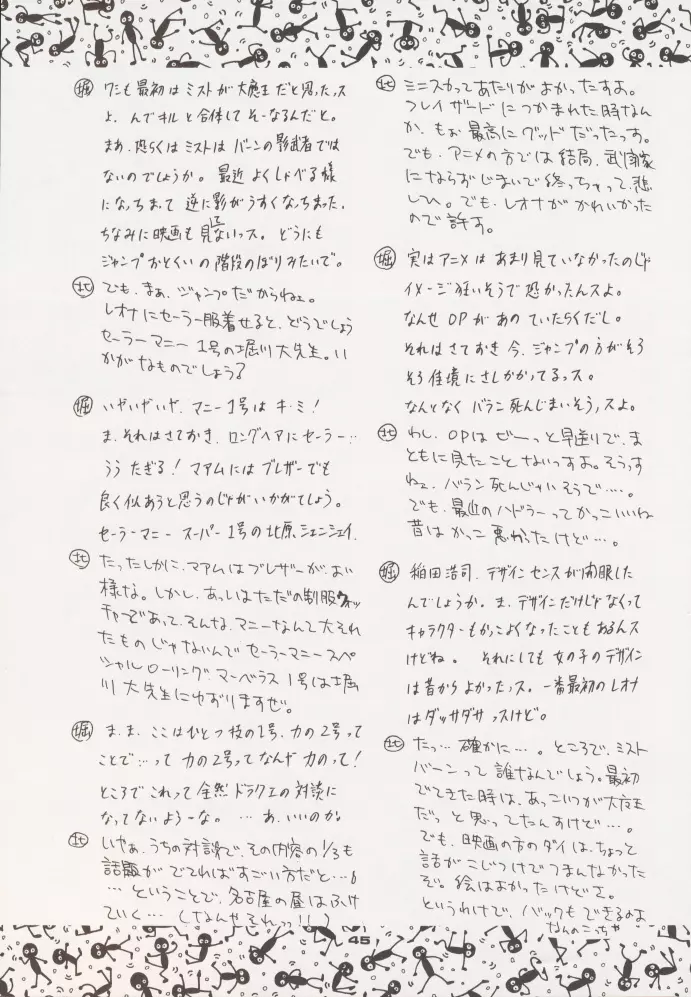 北 ミニスカってあたりがよかったすよ。
フレイザードにつかまれた時なん
か、もぉ最高にグッドだったっす。
でも、アニメの方では結局、武闘家
にならずじまいで終っちゃって、悲
しひ。でも、レオナがかわいかった
ので許す。
堀 実はアニメはあまり見ていなかったのじゃ
イメージ狂いそうで恐かったんスよ。
なんせOPがあのていたらくだし。
それはさておき今、ジャンプの方がそろ
そろ佳境にさしかかってるっス。
なんとなくバラン死んじまいそうっスよ。
北 わし、OPはぜーっと早送りで、ま
ともに見たことないっすよ。そうっす
ねェ、バラン死んじゃいそうで…。
でも、最近のハドラーってかっこいいね
昔はかっこ悪かったけど…。
堀 稲田浩司、デザインセンスが開眼した
んでしょうか。ま、デザインだけじゃなくって
キャラクターもかっこよくなったこともあるんス
けどね。それにしても女の子のデザイン
は昔からよかったっス。一番最初のレオナ
はダッサダサっスけど。
北 たっ…確かに…。ところで、ミスト
バーンって誰なんでしょう。最初
でてきた時は、あっこいつが大魔王
だっと思ってたんすけど…。
でも、映画の方のダイは、ちょっと
話がこじつけでつまんなかった
ぞ。絵はよかったけどさ。
というわけで、バックもできるのよ
なんのこっちゃ
堀 ワシも最初はミストが大魔王だと思ったっス
よ。んでキルと合体してそーなるんだと。
まあ、恐らくはミストはバーンの影武者では
ないのでしょうか。最近よくしゃべる様
になっちまって逆に影がうすくなっちまった。
ちなみに映画も見てないっス。どうにも
ジャンプおとくいの階段のぼりみたいで。
北 でも、まぁ、ジャンプだからねェ。
レオナにセーラー服着せると、どうでしょう
セーラーマニー1号の堀川大先生。い
かがなものでしょう？
堀 いやいやいや、マニー1号はキ・ミ！
ま、それはさておき、ロングヘアにセーラー…
うう たぎる！マアムにはブレザーでも
良く似あうと思うのじゃがいかがでしょう。
セーラーマニー スーパー1号の北原シェンシェイ。
北 たったしかに、マアムはブレザーが、よい
様な。しかし、あっしはただの制服ウォッ
チャーであって、そんな、マニーなんて大それ
たものじゃないんでセーラーマニースペ
シャルローリングマーベラス1号は堀
川大先生にゆずりますぜ。
堀 ま、ま、ここはひとつ技の1号、力の2号って
ことで…って力の2号ってなんや力のって！
ところでこれって全然ドラクエの対談に
なってないよーな。…あ、いいのか。
北 いやぁ、うちの対談で、その内容の1/3も
話題がでてればすごい方だと…。
…ということで、名古屋の昼はふけ
ていく…（なんやそれっ！！）
45